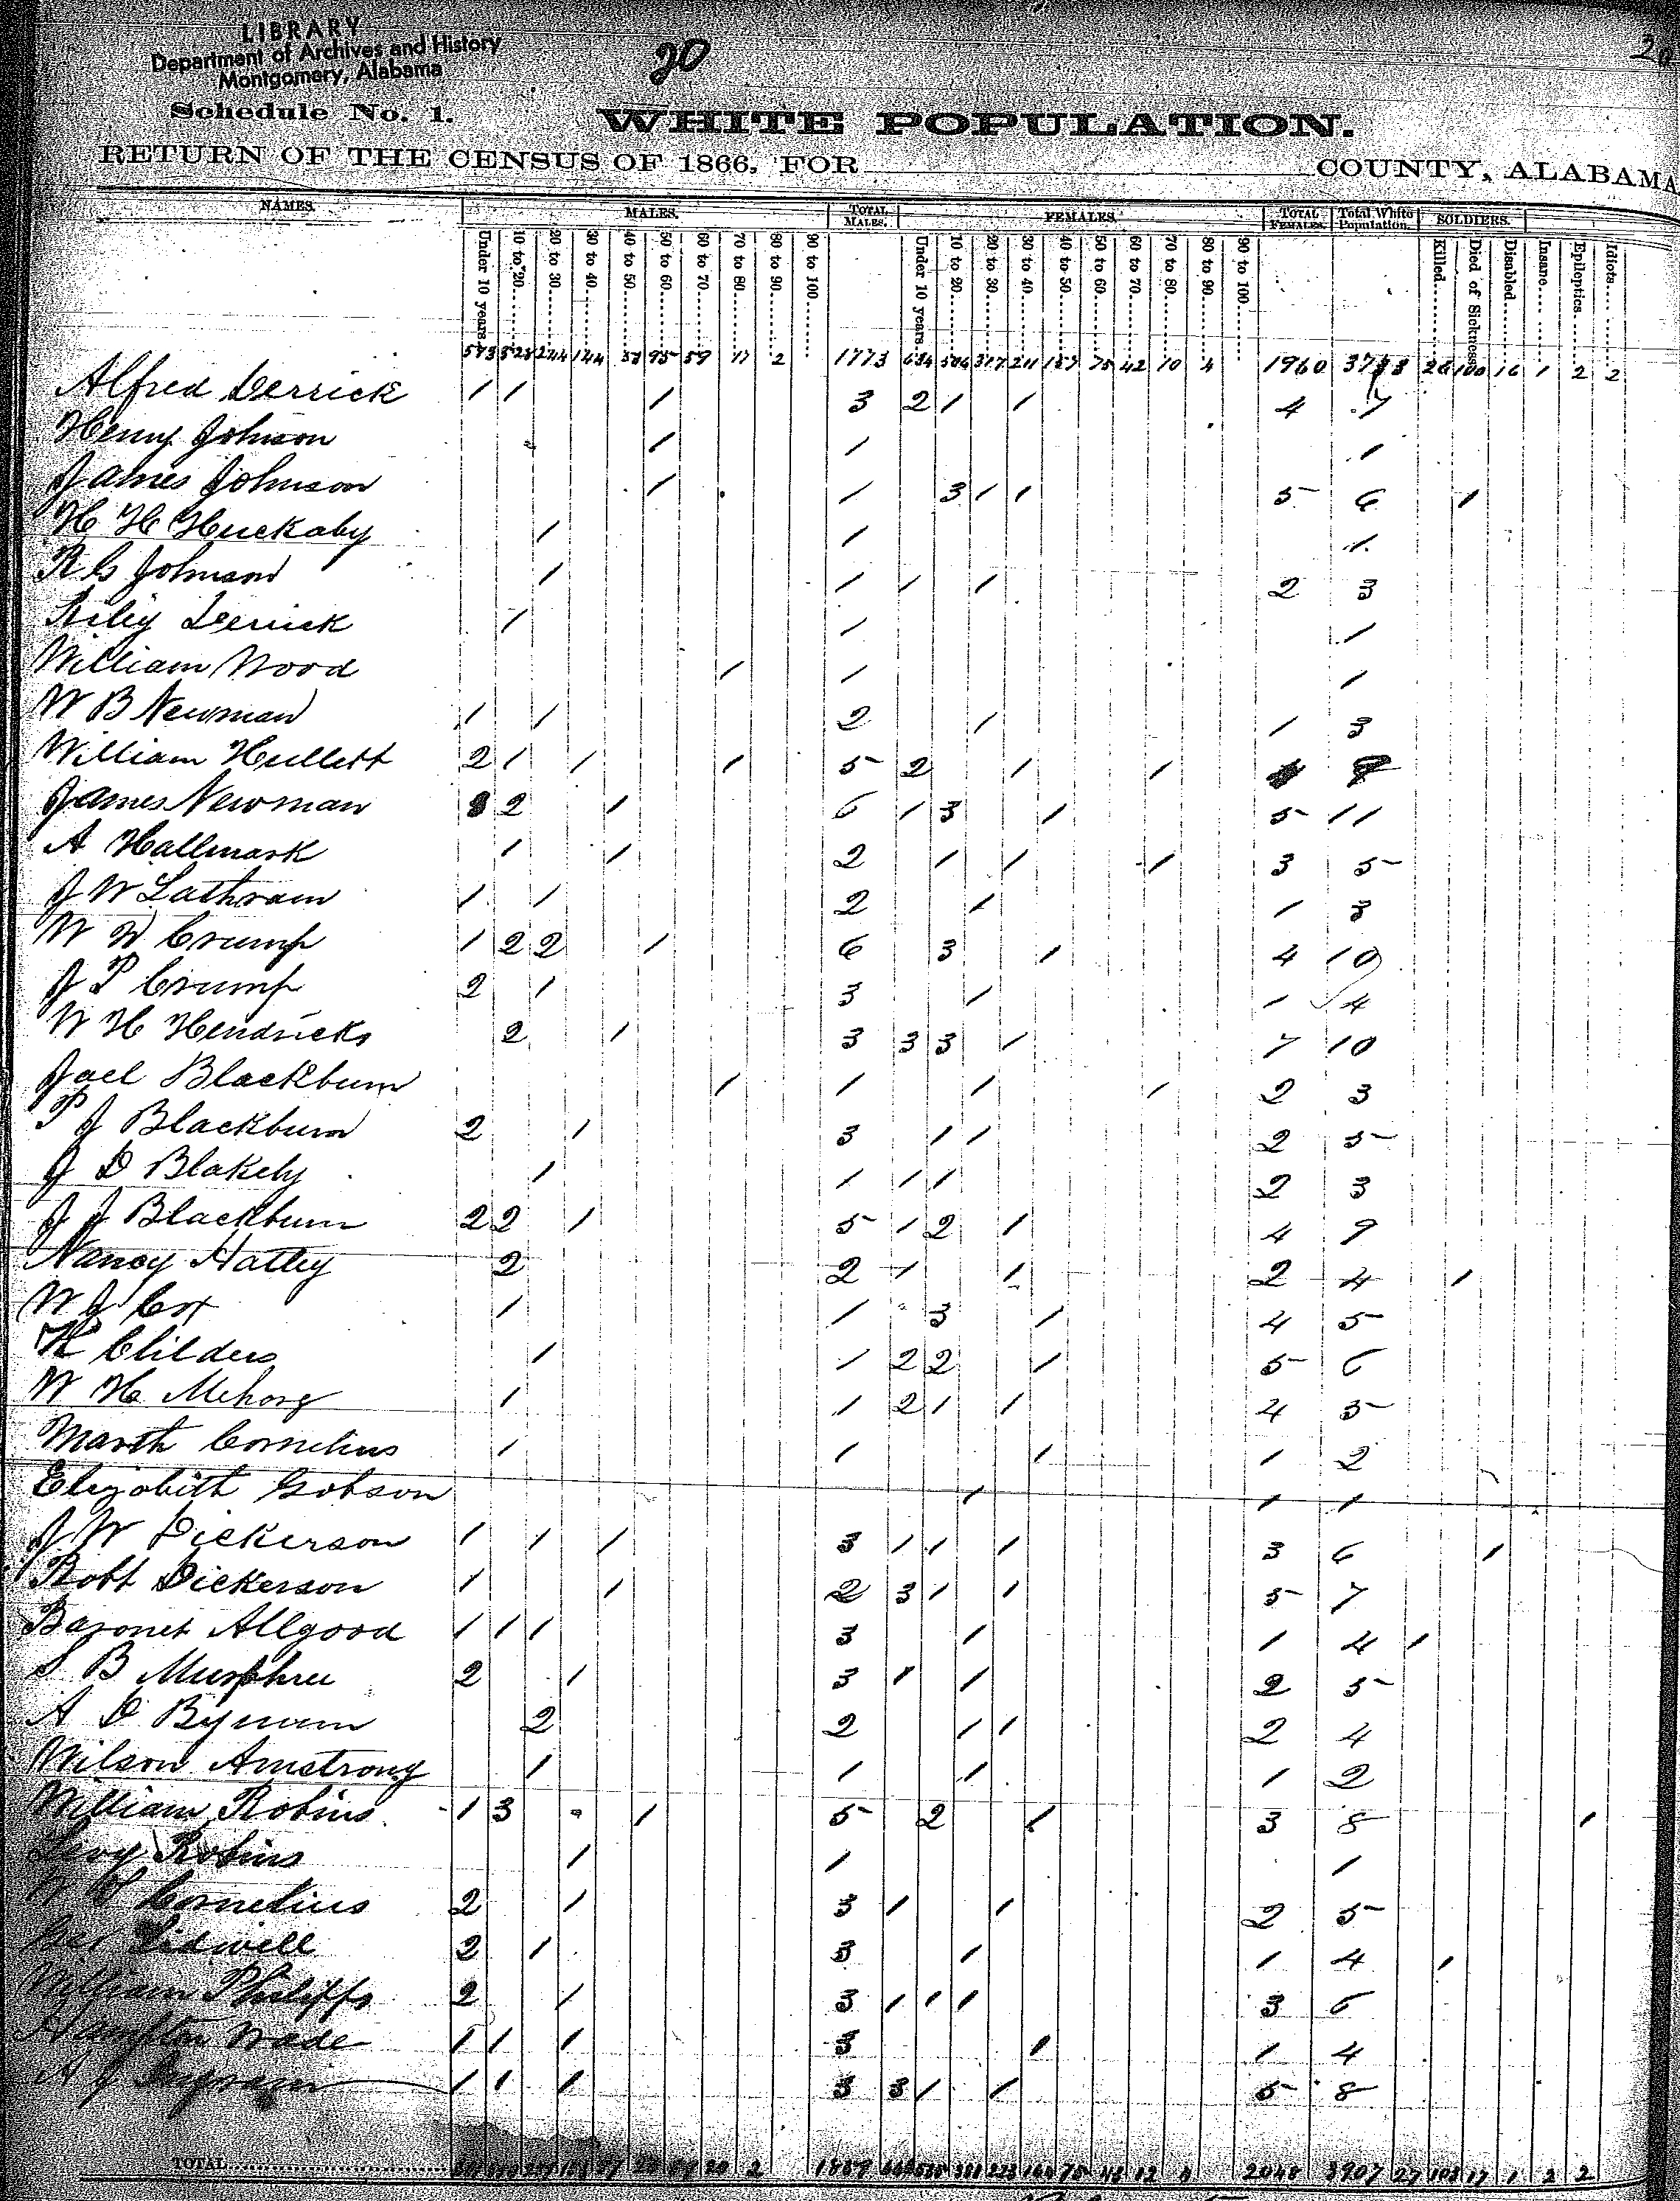 LIBRARY
Department of Archives and History
Montgomery, Alabama
20
Schedule No. 1.
WHITE POPULATION.
RETURN OF THE CENSUS OF 1866, FOR COUNTY, ALABAMA
NAMES. MALES. TOTAL MALES. FEMALES. TOTAL FEMALES. Total White Population. SOLDIERS.
Under 10 years. 10 to 20. 20 to 30. 30 to 40. 40 to 50. 50 to 60. 60 to 70. 70 to 80. 80 to 90. 90 to 100. Under 10 years. 10 to 20. 20 to 30. 30 to 40. 40 to 50. 50 to 60. 60 to 70. 70 to 80. 80 to 90. 90 to 100. Killed. Died of Sickness. Disabled. Insane. Epileptics. Idiots.
244 144 59 17 2 1773 634 506 317 211 157 75 42 10 4 1960 26 100 16 1 2 2
Alfred Derrick 1 1 1 3 2 1 1 4 7
Henry Johnson 1 1 1
James Johnson 1 1 3 1 1 5 6 1
H H Huckaby 1 1 1
Johnson 1 1 1 1 2 3
Riley Derrick 1 1 1
William Wood 1 1 1
W B Newman 1 1 2 1 1 3
William Hullett 2 1 1 1 5 2 1 1
James Newman 2 1 6 1 3 1 5 11
A Hallmark 1 1 2 1 1 1 3 5
J W Lathram 1 1 2 1 1 3
W W Crump 1 2 2 1 6 3 1 4 10
J P Crump 2 1 3 1 1 4
W H Hendricks 2 1 3 3 3 1 7 10
Joel Blackburn 1 1 1 1 2 3
P J Blackburn 2 1 3 1 1 2 5
J D Blakely 1 1 1 1 2 3
J J Blackburn 2 2 1 5 1 2 1 4 9
Nancy Hatley 2 2 1 1 2 4 1
W J Cox 1 1 3 1 4 5
Childers 1 1 2 2 1 5 6
W H 1 1 2 1 1 4 5
Cornelius 1 1 1 1 2
Elizabith Gobson 1 1 1
J W Dickerson 1 1 1 3 1 1 1 3 6 1
Robt Dickerson 1 1 2 3 1 1 5 7
Baronet Allgood 1 1 1 3 1 1 4 1
S B Murphree 2 1 3 1 1 2 5
A D Bynum 2 2 1 1 2 4
Wilson Amstrong 1 1 1 1 2
William Robins 1 3 1 5 2 1 3 8 1
Levy Robins 1 1 1
Cornelius 2 1 3 1 1 2 5
Tidwell 2 1 3 1 1 4 1
William Philipps 2 1 3 1 1 1 3 6
Hampton Wade 1 1 1 3 1 1 4
A J Ingram 1 1 1 3 3 1 1 5 8
TOTAL 2 1859 75 2048 3907 27 103 17 1 2 2